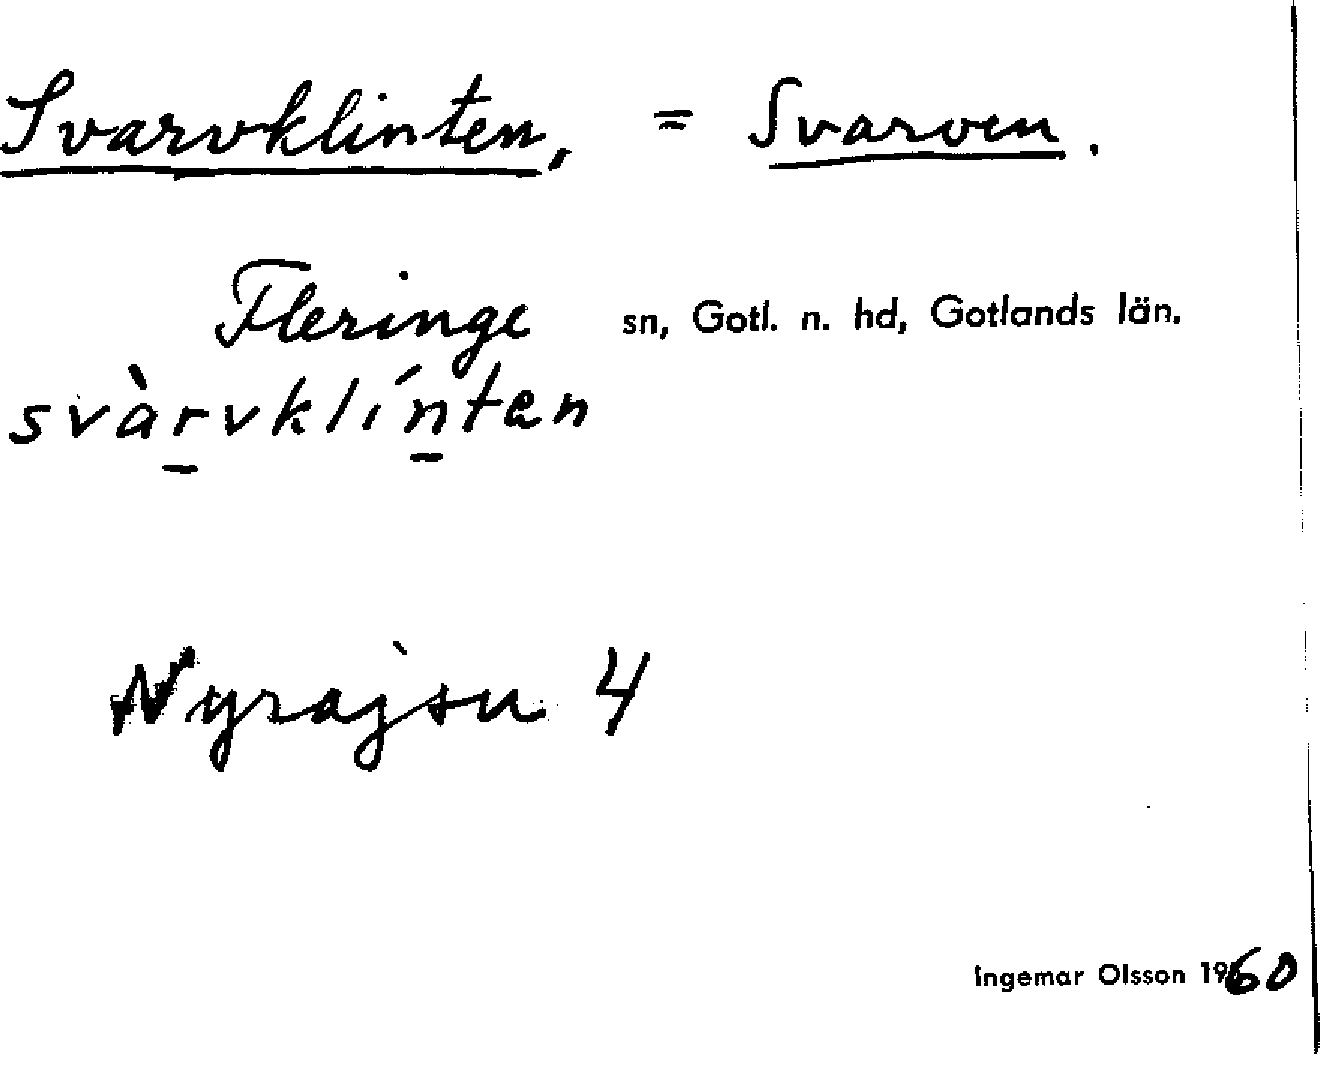 Svarvklinten, = Svarven.
Fleringe sn, Gotl. n. hd, Gotlands län.
svàrvklíntan
Nyrajsu 4
Ingemar Olsson 1960